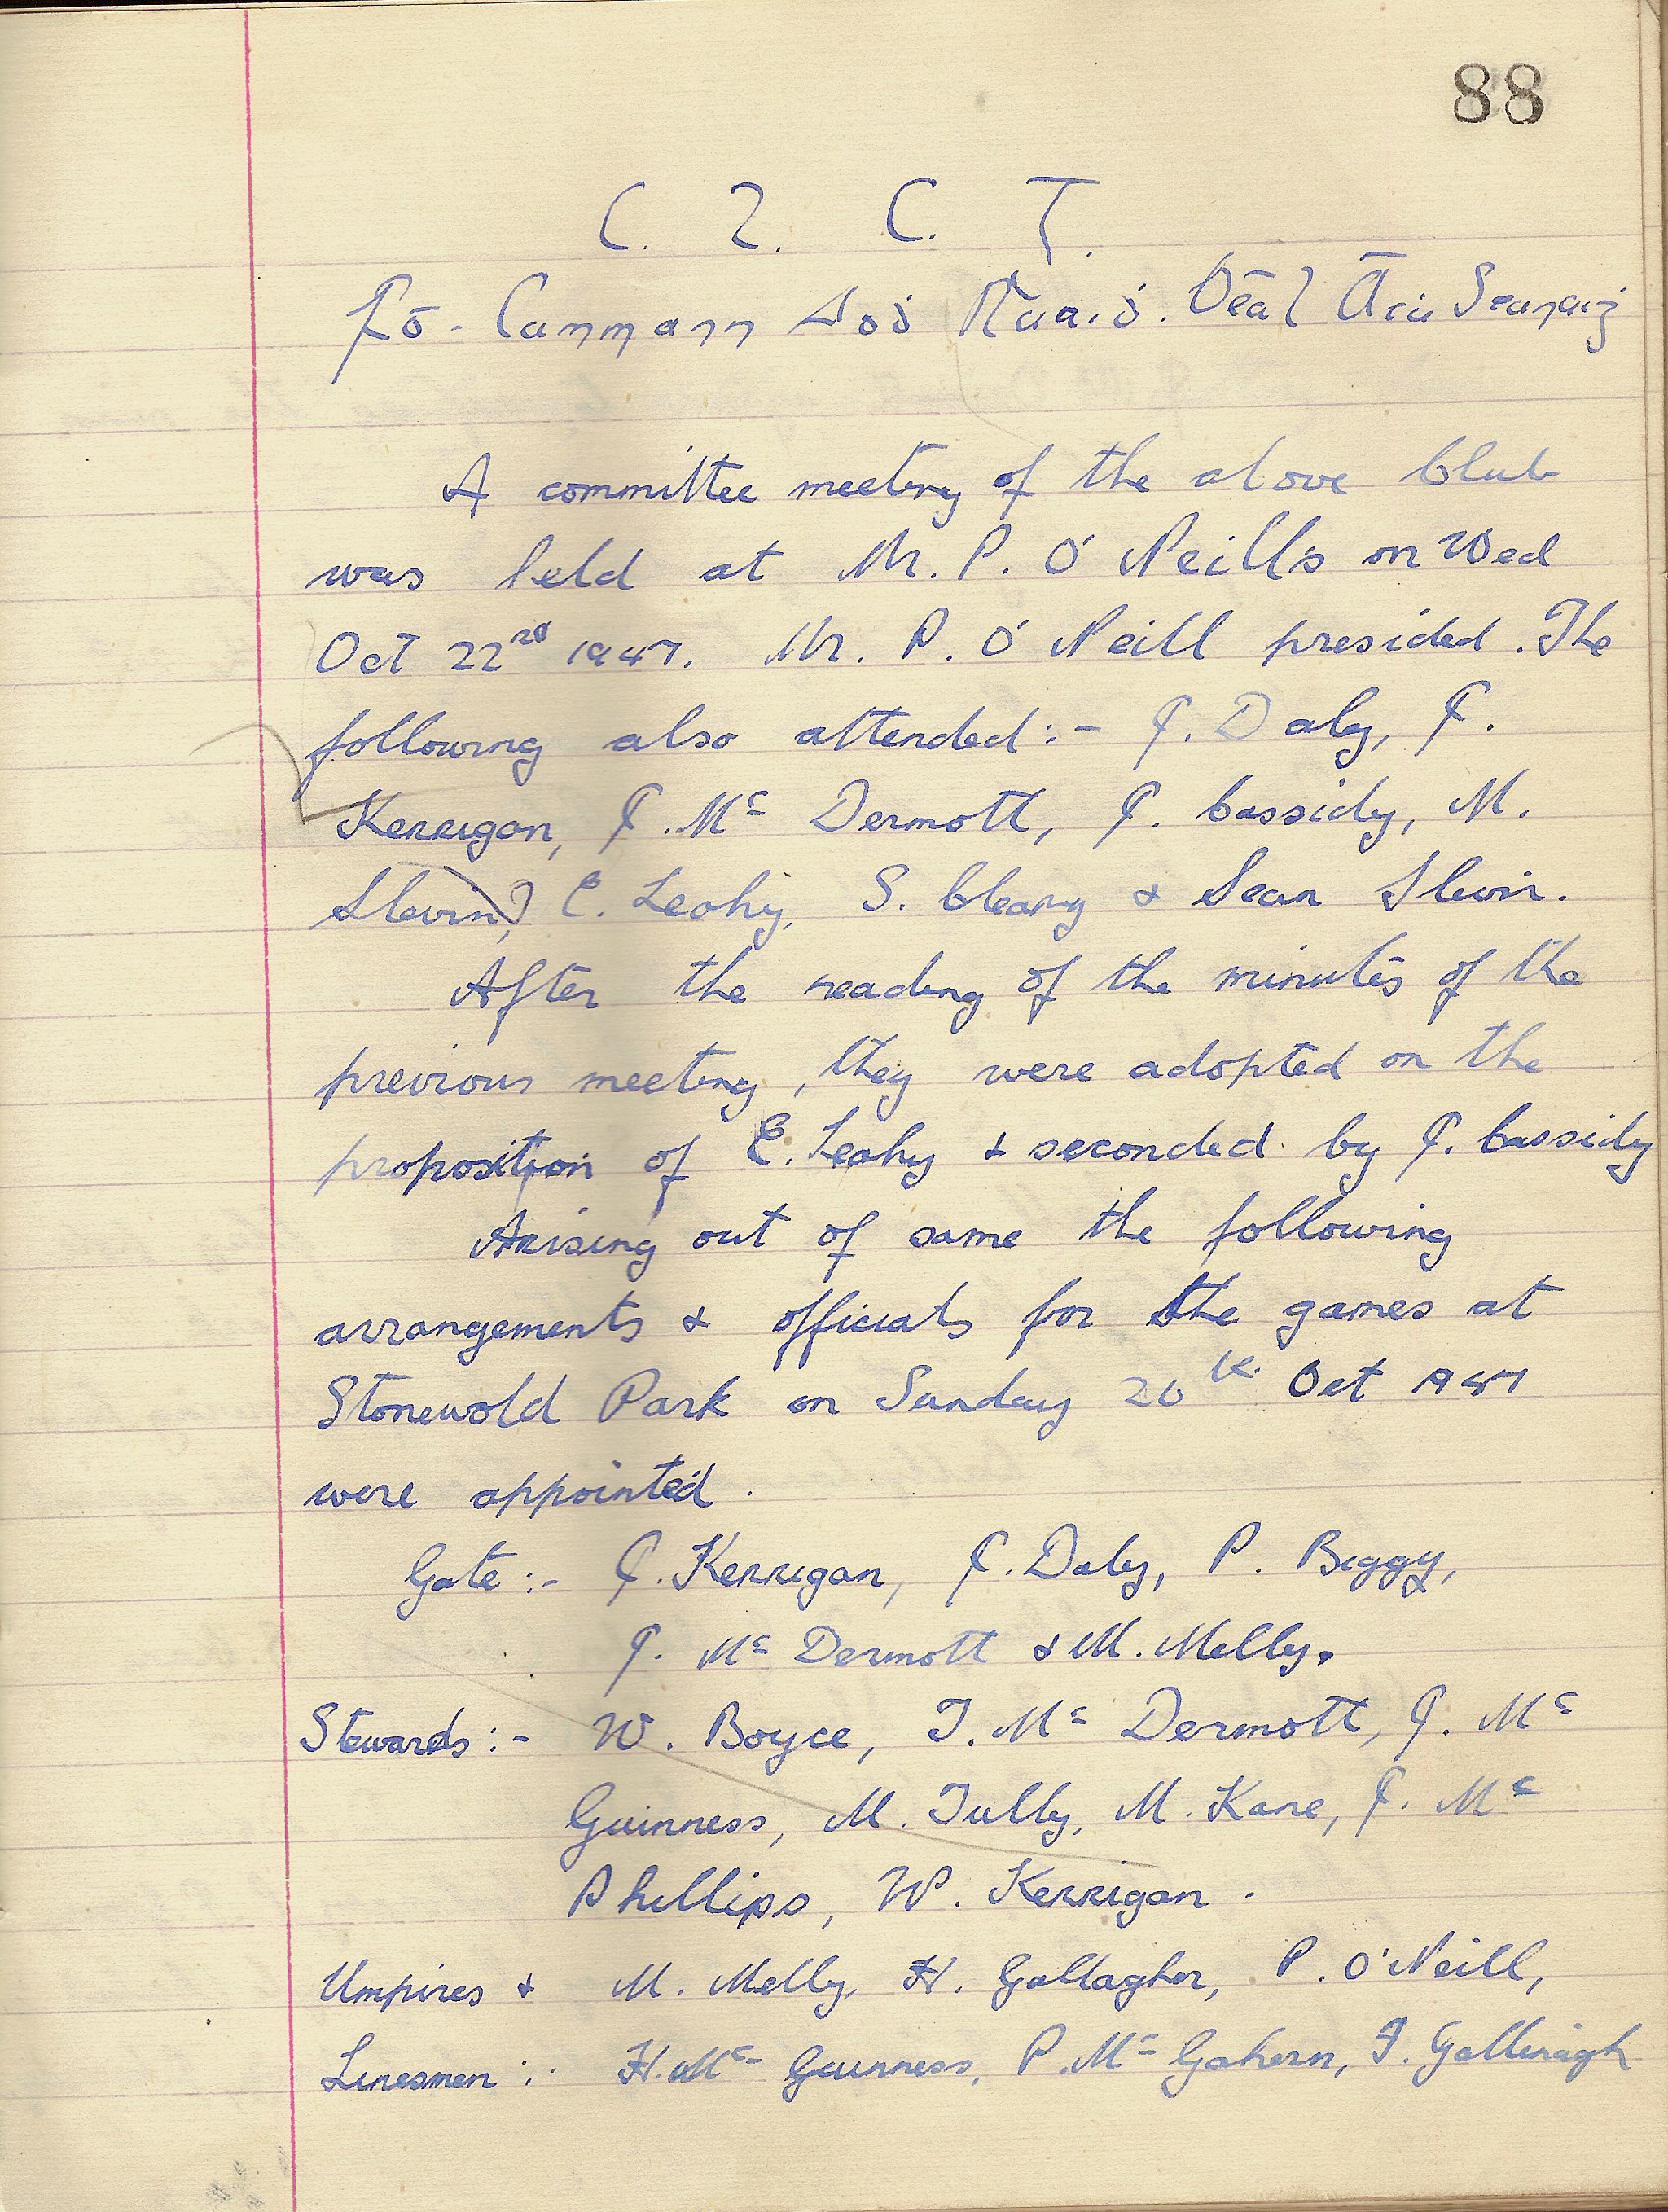 88
C. L. C. T.
Fó-Cummann Aoḋ Ruaiḋ. Béal Áṫa Seanaiġ
A committee meeting of the above Club
was held at Mr. P. O'Neill's on Wed
Oct 22nd 1947. Mr. P. O'Neill presided. The
following also attended:- J. Daly, J.
Kerrigan, J. Mc Dermott, J. Cassidy, M.
Slevin, E. Leahy, S. Cleary & Sean Slevin.
After the reading of the minutes of the
previous meeting, they were adopted on the
proposition of E. Leahy & seconded by J. Cassidy
Arising out of same the following
arrangements & officials for the games at
Stonewold Park on Sunday 26th Oct 1947
were appointed.
Gate:- J. Kerrigan, J. Daly, P. Biggy,
J. Mc Dermott & M. Melly.
Stewards:- W. Boyce, T. Mc Dermott, J. Mc
Guinness, M. Tully, M. Kane, J. Mc
Phillips, W. Kerrigan.
Umpires & M. Melly, H. Gallagher, P. O'Neill,
Linesmen:- H. Mc Guinness, P. Mc Gahern, F. Gallinagh